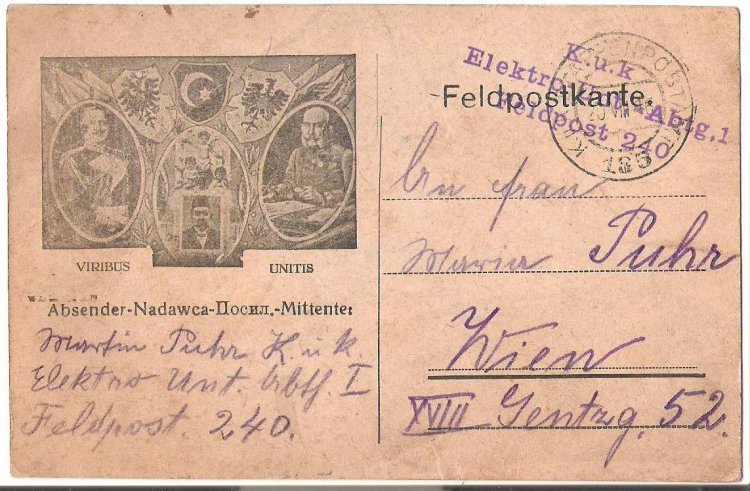 VIRIBUS UNITIS
Absender-Nadawca-Посил.-Mittente:
Martin Puhr K. u. k.
Elektro Unt. Abtlg. I
Feldpost. 240.
K.u.k
Elektro Abtg.1
Feldpost 240
Feldpostkarte.
185
An Frau
Maria Puhr
Wien
XVIII Gentzg. 52.